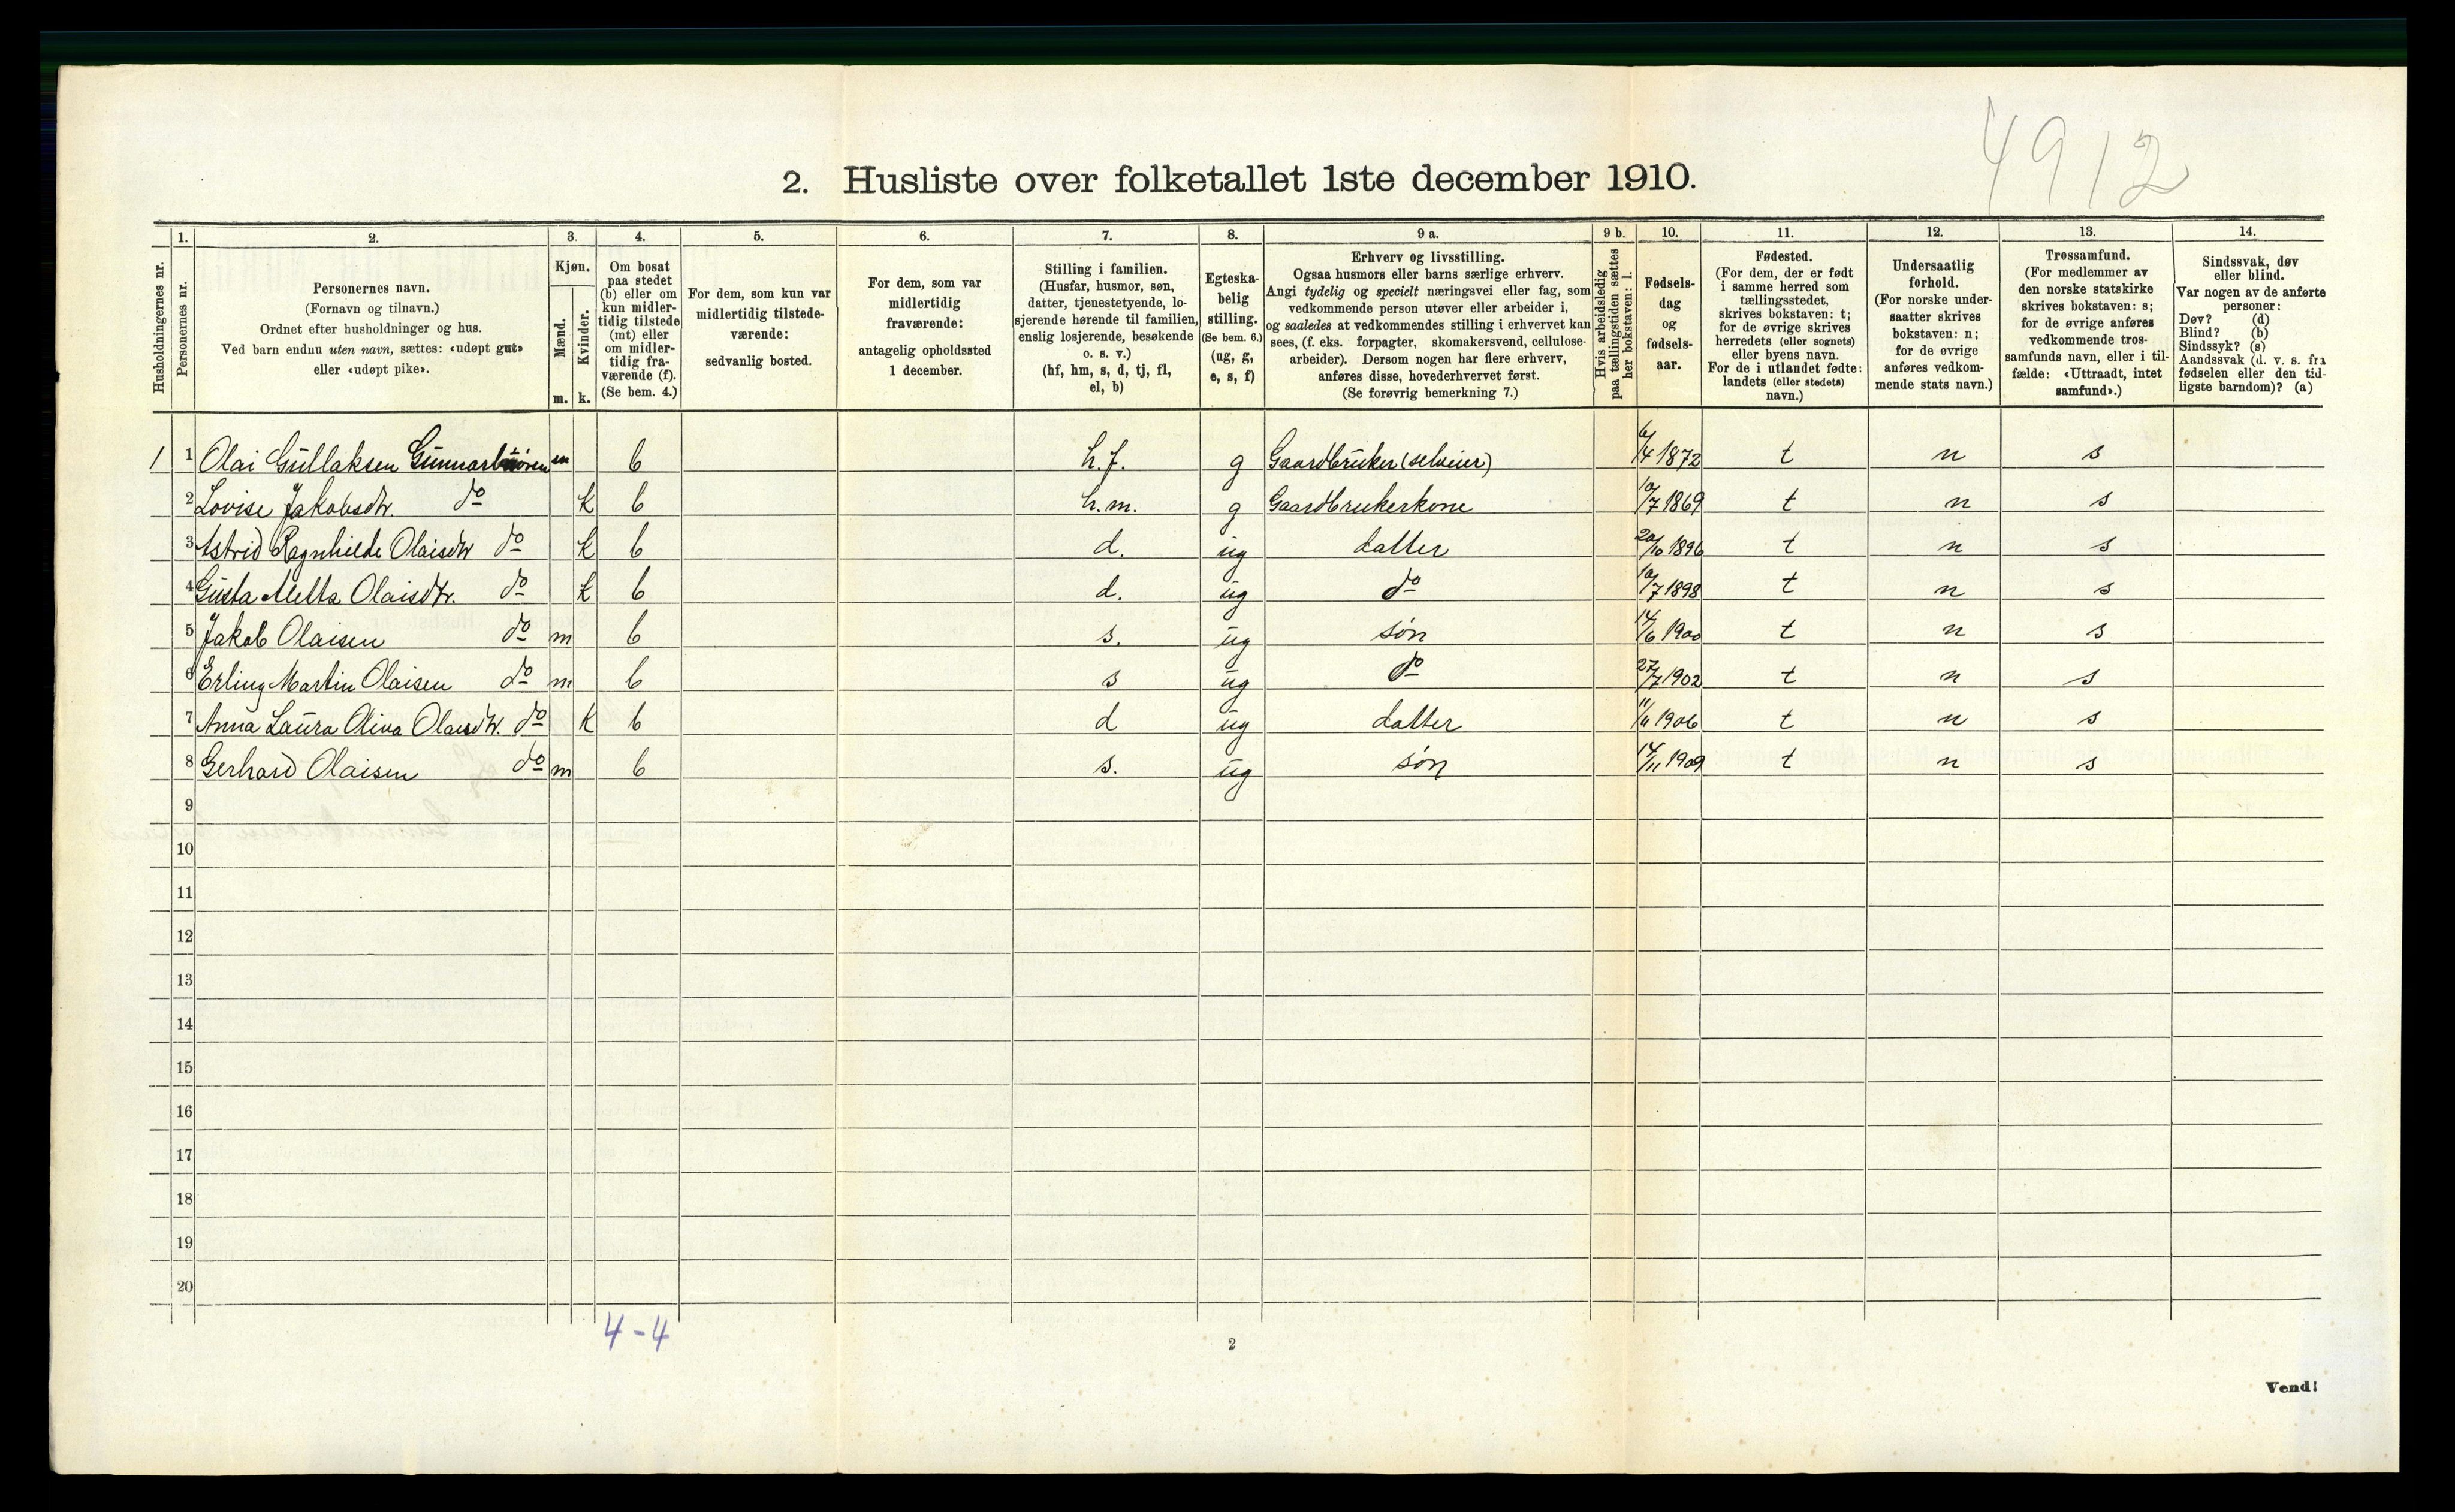 4912
2. Husliste over folketallet 1ste december 1910.
Husholdningernes nr.
1.
Personernes nr.
2.
Personernes navn.
(Fornavn og tilnavn.)
Ordnet efter husholdninger og hus.
Ved barn endnu uten navn, sættes: «udøpt gut»
eller «udøpt pike».
3.
Kjøn.
Mænd.
Kvinder.
m. k.
4.
Om bosat
paa stedet
(b) eller om
kun midler-
tidig tilstede
(mt) eller
om midler-
tidig fra-
værende (f).
(Se bem. 4.)
5.
For dem, som kun var
midlertidig tilstede-
værende:
sedvanlig bosted.
6.
For dem, som var
midlertidig
fraværende:
antagelig opholdssted
1 december.
7.
Stilling i familien.
(Husfar, husmor, søn,
datter, tjenestetyende, lo-
sjerende hørende til familien,
enslig losjerende, besøkende
o. s. v.)
(hf, hm, s, d, tj, fl,
el, b)
8.
Egteska-
belig
stilling.
(Se bem. 6.)
(ug, g,
e, s, f)
9 a.
Erhverv og livsstilling.
Ogsaa husmors eller barns særlige erhverv.
Angi tydelig og specielt næringsvei eller fag, som
vedkommende person utøver eller arbeider i,
og saaledes at vedkommendes stilling i erhvervet kan
sees, (f. eks. forpagter, skomakersvend, cellulose-
arbeider). Dersom nogen har flere erhverv,
anføres disse, hovederhvervet først.
(Se forøvrig bemerkning 7.)
9 b.
Hvis arbeidsledig
paa tællingstiden sættes
her bokstaven: l.
10.
Fødsels-
dag
og
fødsels-
aar.
11.
Fødested.
(For dem, der er født
i samme herred som
tællingsstedet,
skrives bokstaven: t;
for de øvrige skrives
herredets (eller sognets)
eller byens navn.
For de i utlandet fødte:
landets (eller stedets)
navn.)
12.
Undersaatlig
forhold.
(For norske under-
saatter skrives
bokstaven: n;
for de øvrige
anføres vedkom-
mende stats navn.)
13.
Trossamfund.
(For medlemmer av
den norske statskirke
skrives bokstaven: s;
for de øvrige anføres
vedkommende tros-
samfunds navn, eller i til-
fælde: «Uttraadt, intet
samfund».)
14.
Sindssvak, døv
eller blind.
Var nogen av de anførte
personer:
Døv? (d)
Blind? (b)
Sindssyk? (s)
Aandssvak (d. v. s. fra
fødselen eller den tid-
ligste barndom)? (a)
1 1 Olai Gullaksen m b h.f. g Gaardbruker (selveier) 6/4 1872 t n s
2 Lovise Jakobsdtr. do k b h.m. g Gaardbrukerkone 10/7 1869 t n s
3 Astrid Ragnhilde Olaisdtr do k b d. ug datter 20/10 1896 t n s
4 Gusta Metta Olaisdtr. do k b d. ug do 10/7 1898 t n s
5 Jakob Olaisen do m b s. ug søn 14/6 1900 t n s
6 Erling Martin Olaisen do m b s ug do 27/7 1902 t n s
7 Anna Laura Oliva Olaisdtr. do k b d ug datter 11/11 1906 t n s
8 Gerhard Olaisen do m b s. ug søn 14/11 1909 t n s
9
10
11
12
13
14
15
16
17
18
19
20
4-4
2
Vend!